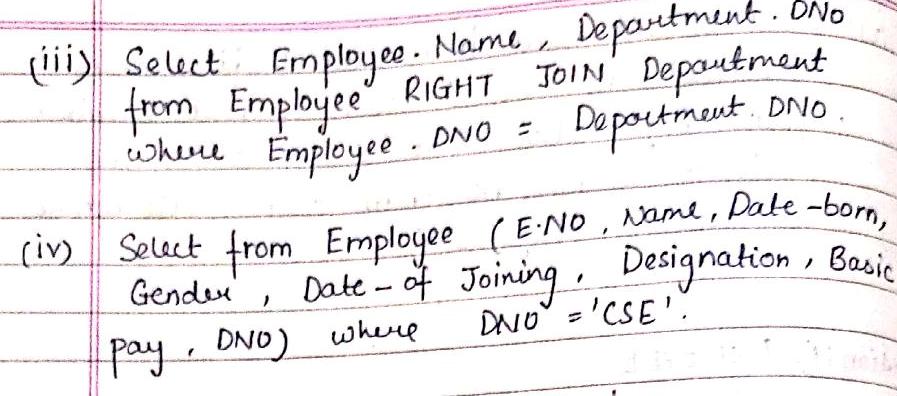 (iii) Select Employee. Name, Department. DNO
from Employee RIGHT JOIN Department
where Employee. DNO = Department. DNO.
(iv) Select from Employee (E.NO, Name, Date-born,
Gender, Date-of Joining, Designation, Basic
pay, DNO) where DNO = 'CSE'.